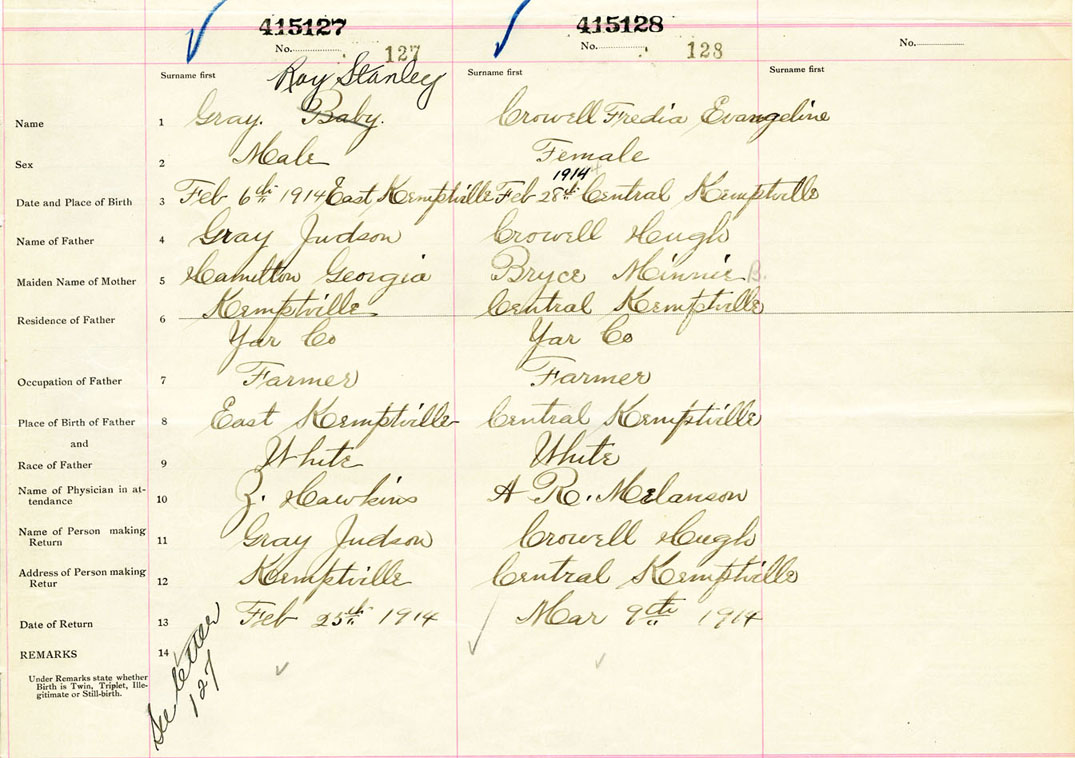 415127 415128
No. 127 No. 128 No.
Surname first Roy Stanley Surname first Surname first
Name 1 Gray. Baby. Crowell Fredia Evangeline
Sex 2 Male Female
1914
Date and Place of Birth 3 Feb 6th 1914 East Kemptville Feb 28th Central Kemptville
Name of Father 4 Gray Judson Crowell Hugh
Maiden Name of Mother 5 Hamilton Georgia Bryce Minnie B.
Residence of Father 6 Kemptville Central Kemptville
Yar Co Yar Co
Occupation of Father 7 Farmer Farmer
Place of Birth of Father 8 East Kemptville Central Kemptville
and
Race of Father 9 White White
Name of Physician in at-
tendance 10 Z. Hawkins A R. Melanson
Name of Person making
Return 11 Gray Judson Crowell Hugh
Address of Person making
Retur 12 Kemptville Central Kemptville
Date of Return 13 Feb 25th 1914 Mar 9th 1914
REMARKS 14
Under Remarks state whether
Birth is Twin, Triplet, Ille-
gitimate or Still-birth.
See letter
127